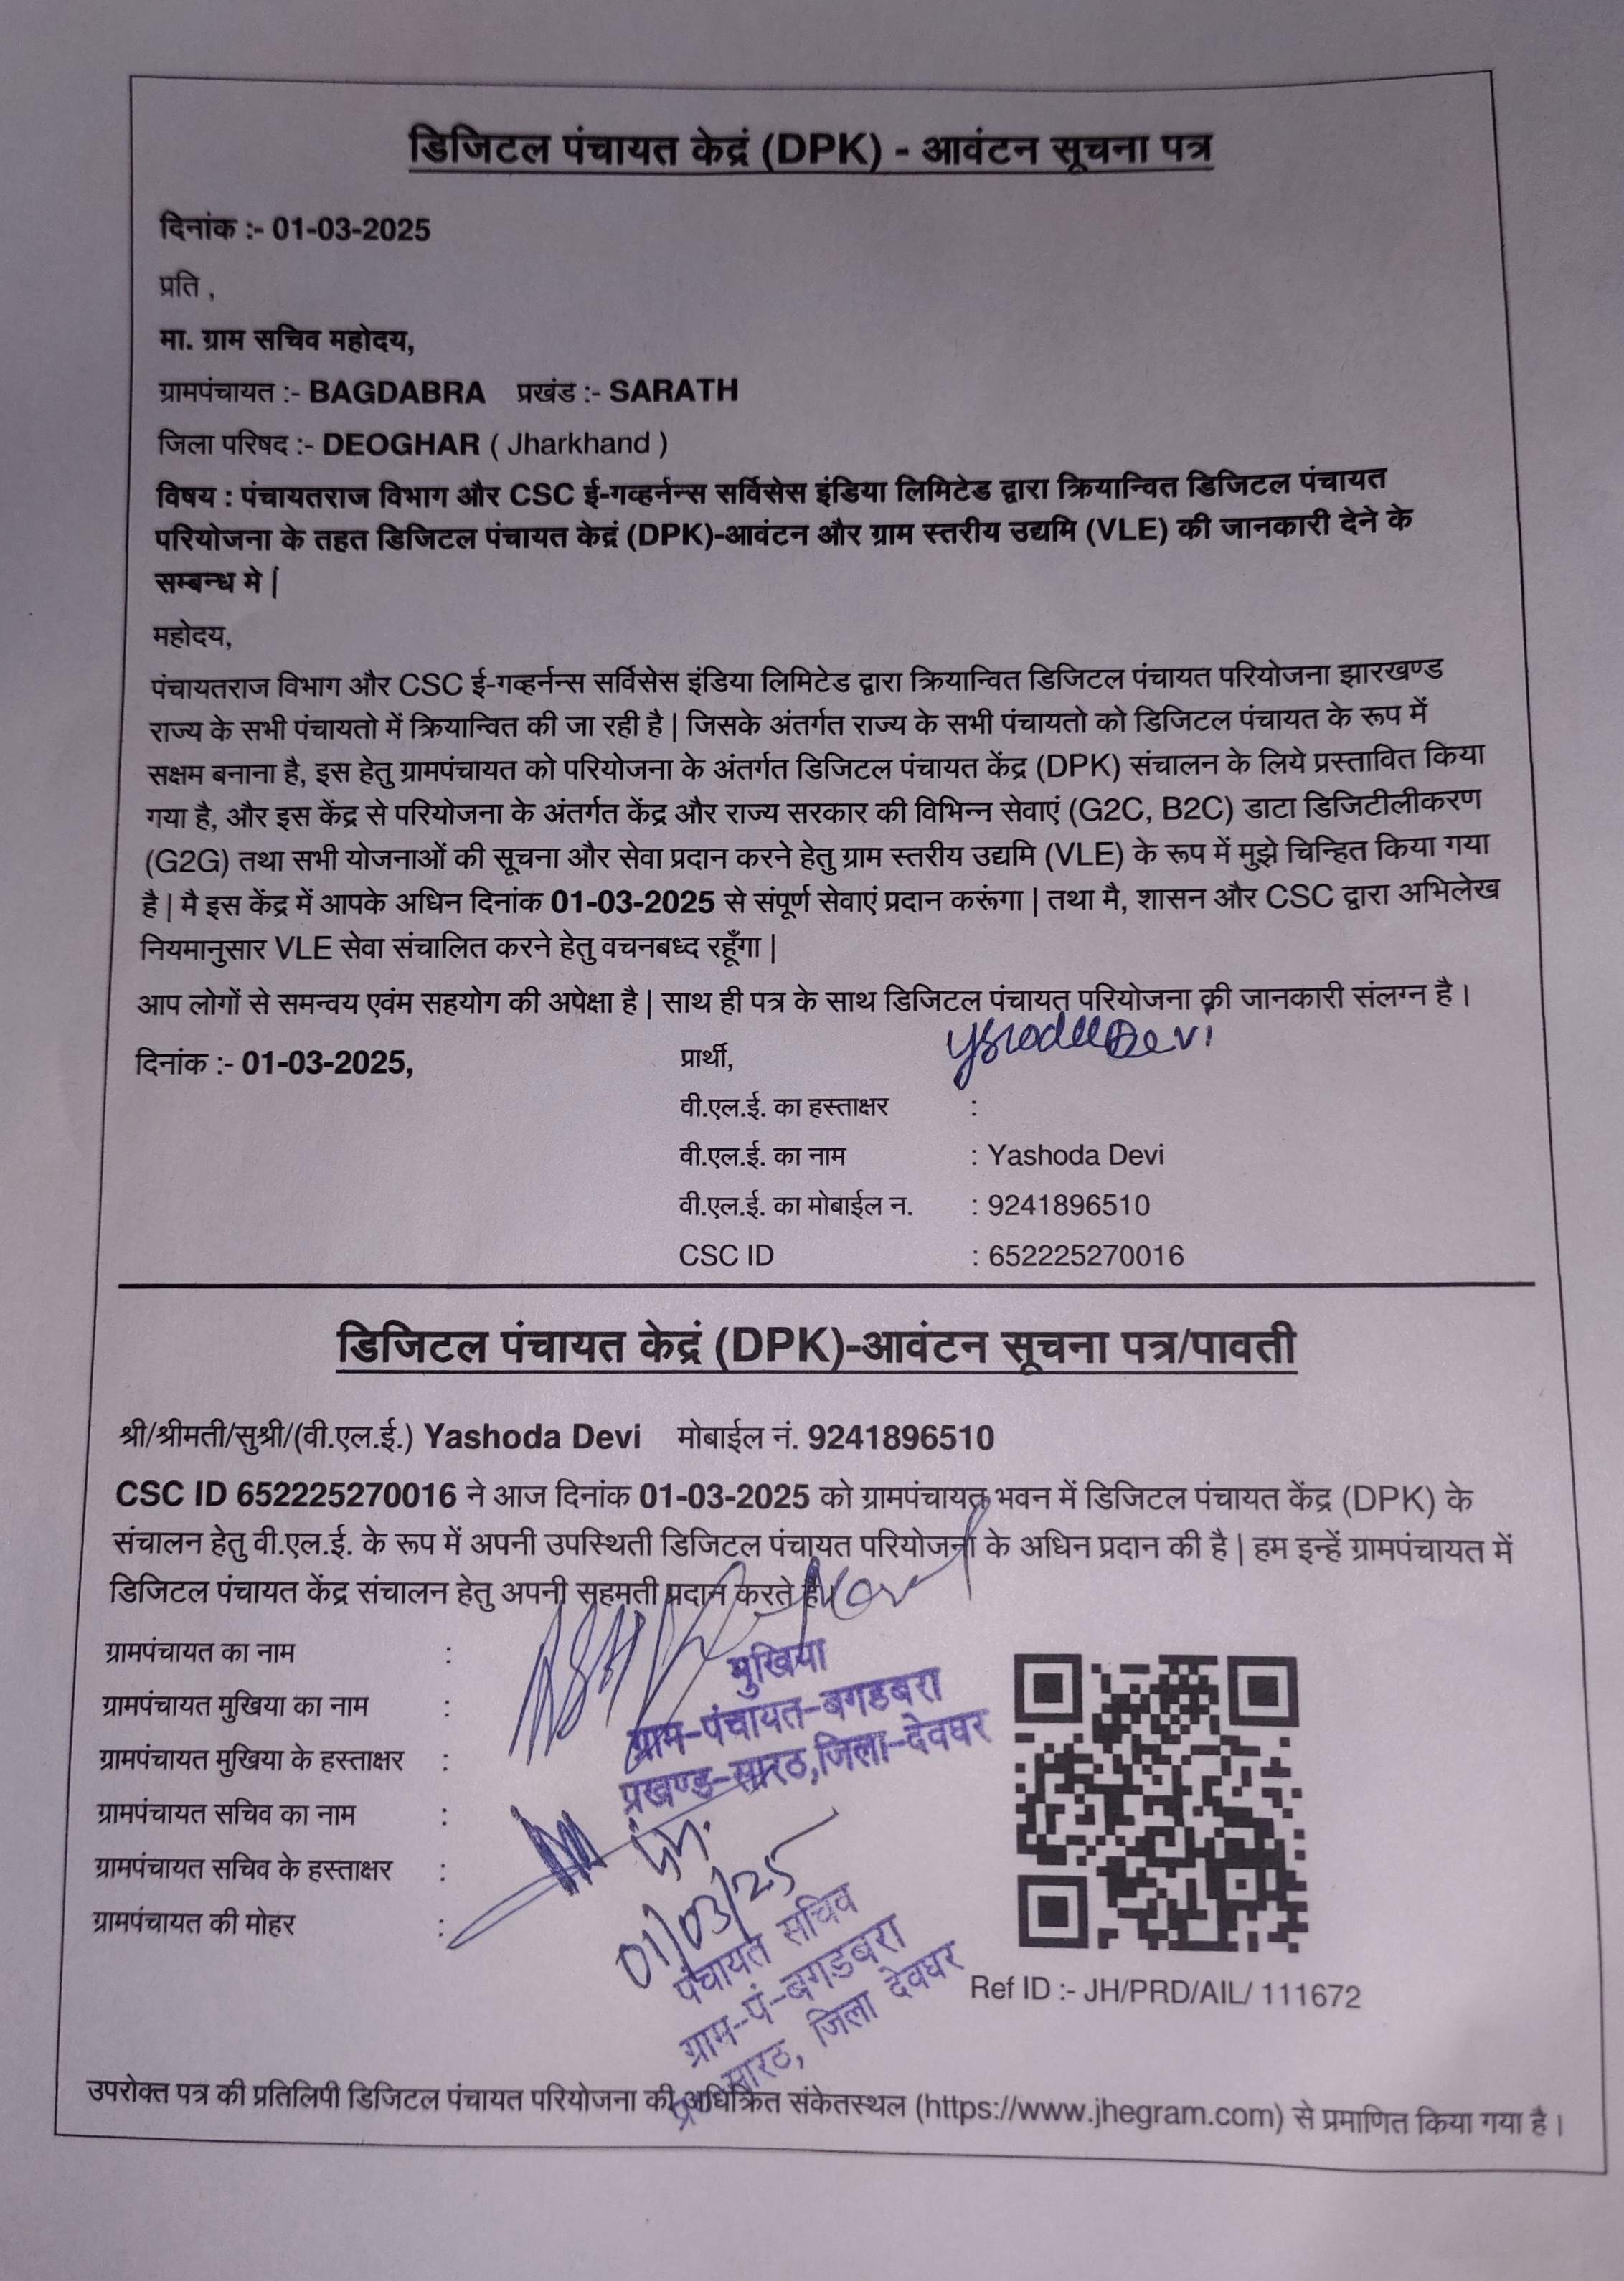 डिजिटल पंचायत केद्रं (DPK) - आवंटन सूचना पत्र
दिनांक :- 01-03-2025
प्रति ,
मा. ग्राम सचिव महोदय,
ग्रामपंचायत :- BAGDABRA प्रखंड :- SARATH
जिला परिषद :- DEOGHAR ( Jharkhand )
विषय : पंचायतराज विभाग और CSC ई-गव्हर्नन्स सर्विसेस इंडिया लिमिटेड द्वारा क्रियान्वित डिजिटल पंचायत
परियोजना के तहत डिजिटल पंचायत केद्रं (DPK)-आवंटन और ग्राम स्तरीय उद्यमि (VLE) की जानकारी देने के
सम्बन्ध मे |
महोदय,
पंचायतराज विभाग और CSC ई-गव्हर्नन्स सर्विसेस इंडिया लिमिटेड द्वारा क्रियान्वित डिजिटल पंचायत परियोजना झारखण्ड
राज्य के सभी पंचायतो में क्रियान्वित की जा रही है | जिसके अंतर्गत राज्य के सभी पंचायतो को डिजिटल पंचायत के रूप में
सक्षम बनाना है, इस हेतु ग्रामपंचायत को परियोजना के अंतर्गत डिजिटल पंचायत केंद्र (DPK) संचालन के लिये प्रस्तावित किया
गया है, और इस केंद्र से परियोजना के अंतर्गत केंद्र और राज्य सरकार की विभिन्न सेवाएं (G2C, B2C) डाटा डिजिटीलीकरण
(G2G) तथा सभी योजनाओं की सूचना और सेवा प्रदान करने हेतु ग्राम स्तरीय उद्यमि (VLE) के रूप में मुझे चिन्हित किया गया
है | मै इस केंद्र में आपके अधिन दिनांक 01-03-2025 से संपूर्ण सेवाएं प्रदान करूंगा | तथा मै, शासन और CSC द्वारा अभिलेख
नियमानुसार VLE सेवा संचालित करने हेतु वचनबध्द रहूँगा |
आप लोगों से समन्वय एवंम सहयोग की अपेक्षा है | साथ ही पत्र के साथ डिजिटल पंचायत परियोजना की जानकारी संलग्न है ।
दिनांक :- 01-03-2025, प्रार्थी,
वी.एल.ई. का हस्ताक्षर :
वी.एल.ई. का नाम : Yashoda Devi
वी.एल.ई. का मोबाईल न. : 9241896510
CSC ID : 652225270016
डिजिटल पंचायत केद्रं (DPK)-आवंटन सूचना पत्र/पावती
श्री/श्रीमती/सुश्री/(वी.एल.ई.) Yashoda Devi मोबाईल नं. 9241896510
CSC ID 652225270016 ने आज दिनांक 01-03-2025 को ग्रामपंचायत भवन में डिजिटल पंचायत केंद्र (DPK) के
संचालन हेतु वी.एल.ई. के रूप में अपनी उपस्थिती डिजिटल पंचायत परियोजना के अधिन प्रदान की है | हम इन्हें ग्रामपंचायत में
डिजिटल पंचायत केंद्र संचालन हेतु अपनी सहमती प्रदान करते है।
ग्रामपंचायत का नाम :
ग्रामपंचायत मुखिया का नाम :
ग्रामपंचायत मुखिया के हस्ताक्षर :
ग्रामपंचायत सचिव का नाम :
ग्रामपंचायत सचिव के हस्ताक्षर :
ग्रामपंचायत की मोहर :
मुखिया
ग्राम-पंचायत-बगडबरा
प्रखण्ड-सारठ,जिला-देवघर
01/03/25
पंचायत सचिव
ग्राम-पं-बगडबरा
सारठ, जिला देवघर
Ref ID :- JH/PRD/AIL/ 111672
उपरोक्त पत्र की प्रतिलिपी डिजिटल पंचायत परियोजना की अधिक्रित संकेतस्थल (https://www.jhegram.com) से प्रमाणित किया गया है ।